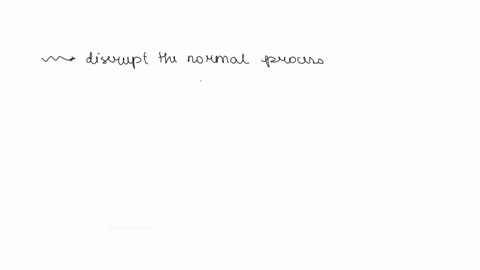 disrupt the normal process